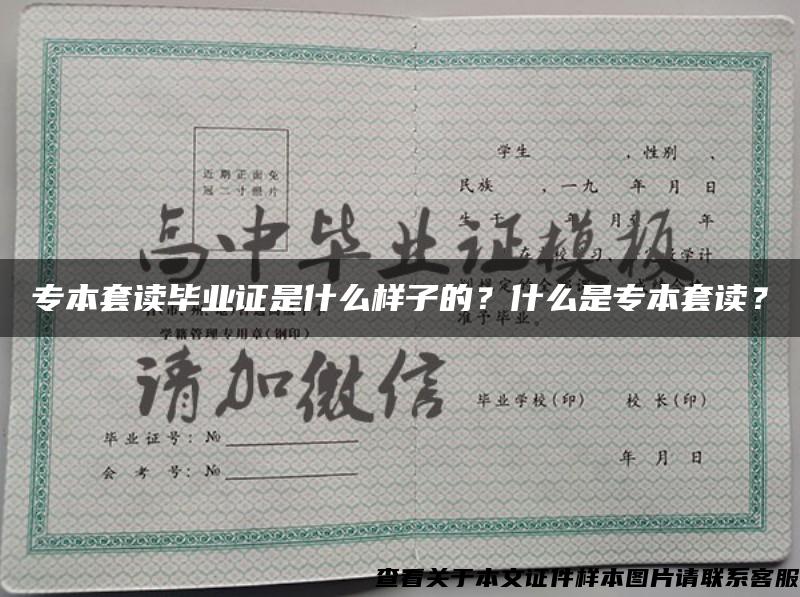 近期正面免
冠二寸照片
学籍管理专用章(钢印)
毕业证号：№
会考号：№
学生 ，性别 、
民族 ，一九 年 月 日
生于 年 月至 年
准予毕业。
毕业学校(印) 校长(印)
年 月 日
高中毕业证模板
专本套读毕业证是什么样子的？什么是专本套读？
请加微信
查看关于本文证件样本图片请联系客服